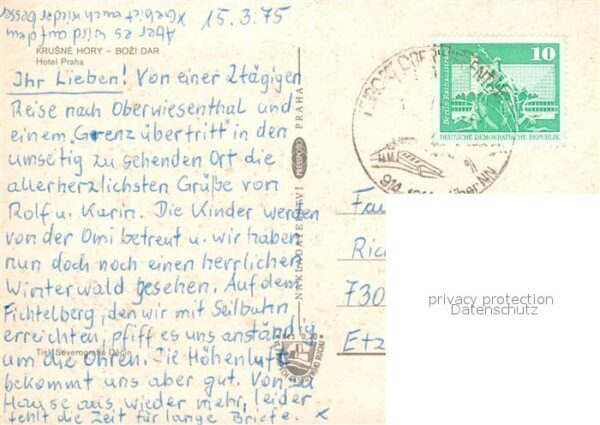 15.3.75
KRUŠNÉ HORY – BOŽÍ DAR
Hotel Praha
Ihr Lieben! Von einer 2tägigen
Reise nach Oberwiesenthal und
einem „Grenzübertritt" in den
umseitig zu sehenden Ort die
allerherzlichsten Grüße von
Rolf u. Karin. Die Kinder werden
von der Omi betreut u. wir haben
nun doch noch einen herrlichen
Winterwald gesehen. Auf dem
Fichtelberg, den wir mit Seilbahn
erreichten, pfiff es uns anständig
um die Ohren. Die Höhenluft
bekommt uns aber gut. Von zu
Hause aus wieder mehr, leider
fehlt die Zeit für lange Briefe. x
x Aber es wird auf dem
Gebiet auch wieder besser
Tisk Severografia Děčín
NAKLADATELSTVÍ PRESSFOTO PRAHA
0,20
10
DEUTSCHE DEMOKRATISCHE REPUBLIK
914
über NN
Fa
Ric
730
Etz
privacy protection
Datenschutz